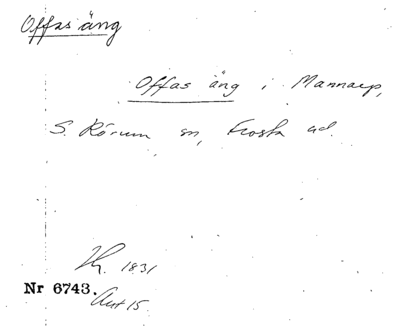 Offas äng
Offas äng i Mannarp,
S. Rörum sn, Frosta hd.
1831
Nr 6743.
Akt 15.